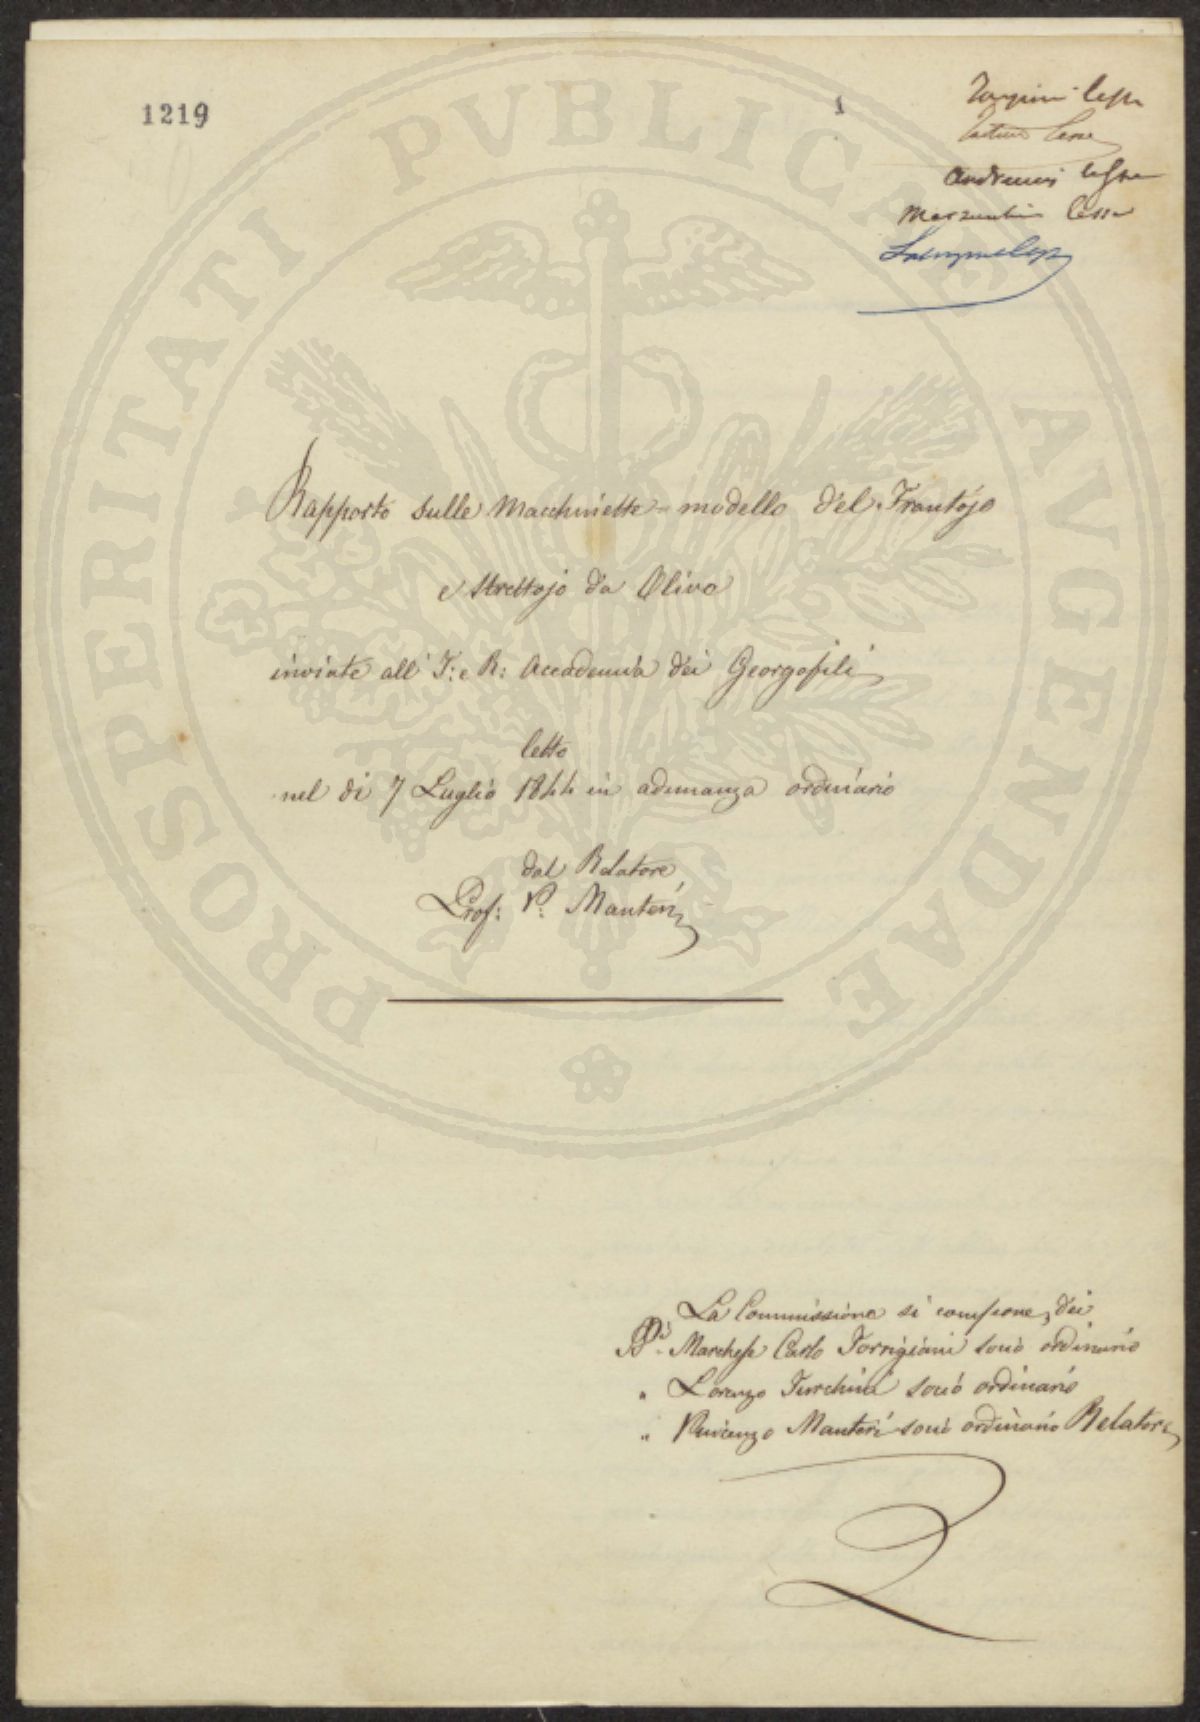 1219
1
Andreucci lesse
lesse
Rapporto sulle Macchinette-modello del Frantojo
e Strettojo da Olivo
inviate all' I: e R: Accademia dei Georgofili
letto
nel dì 7 Luglio 1844 in adunanza ordinaria
dal Relatore
Prof: V: Manteri
La Commissione si compone, dei
Marchese Carlo Torrigiani socio ordinario
" Lorenzo Turchini socio ordinario
" Vincenzo Manteri socio ordinario Relatore
PROSPERITATI PVBLICAE AVGENDAE